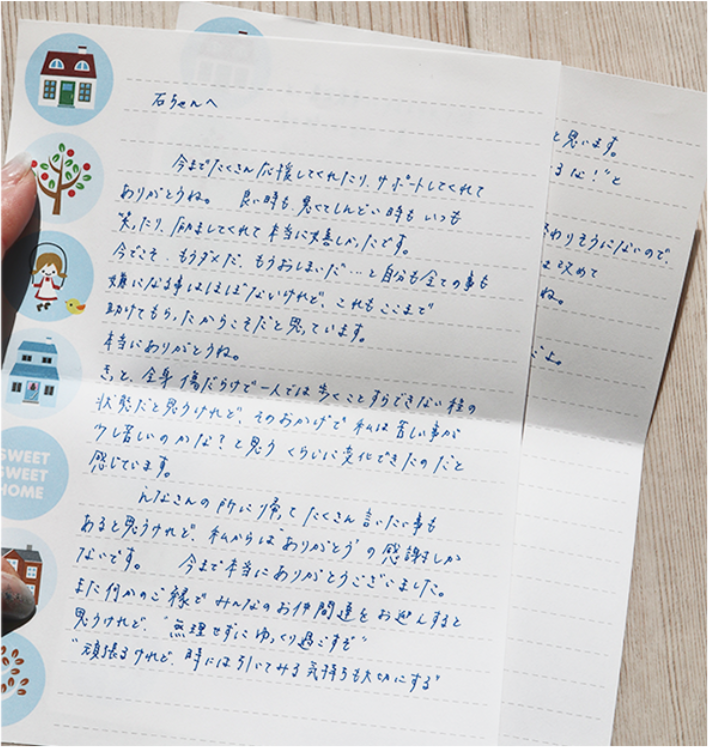 石ちゃんへ
今までたくさん応援してくれたり、サポートしてくれて
ありがとうね。 良い時も、悪くてしんどい時も いつも
笑ったり、励ましてくれて本当に嬉しかったです。
今でこそ、もうダメだ、もうおしまいだ…と自分も全ての事も
嫌になる事はほぼほぼないけれど、これもここまで
助けてもらったからこそだと思っています。
本当にありがとうね。
きっと、全身傷だらけで一人では歩くことすらできない程の
状態だと思うけれど、そのおかげで私は苦しい事が
少し苦いのかな?と思う くらいに変化できたのだと
感じています。
んなさんの所に帰ってたくさん言いたい事も
あると思うけれど、私からは"ありがとう"の感謝しか
ないです。 今まで本当にありがとうございました。
また何かのご縁でみんなのお仲間達をお迎えすると
思うけれど、"無理せずにゆっくり過ごすぞ"
"頑張るけれど、時には引いてみる気持ちも大切にする"
と思います。
るな!"と
わりそうにないので、
改めて
ね。
だよ。
SWEET
SWEET
HOME